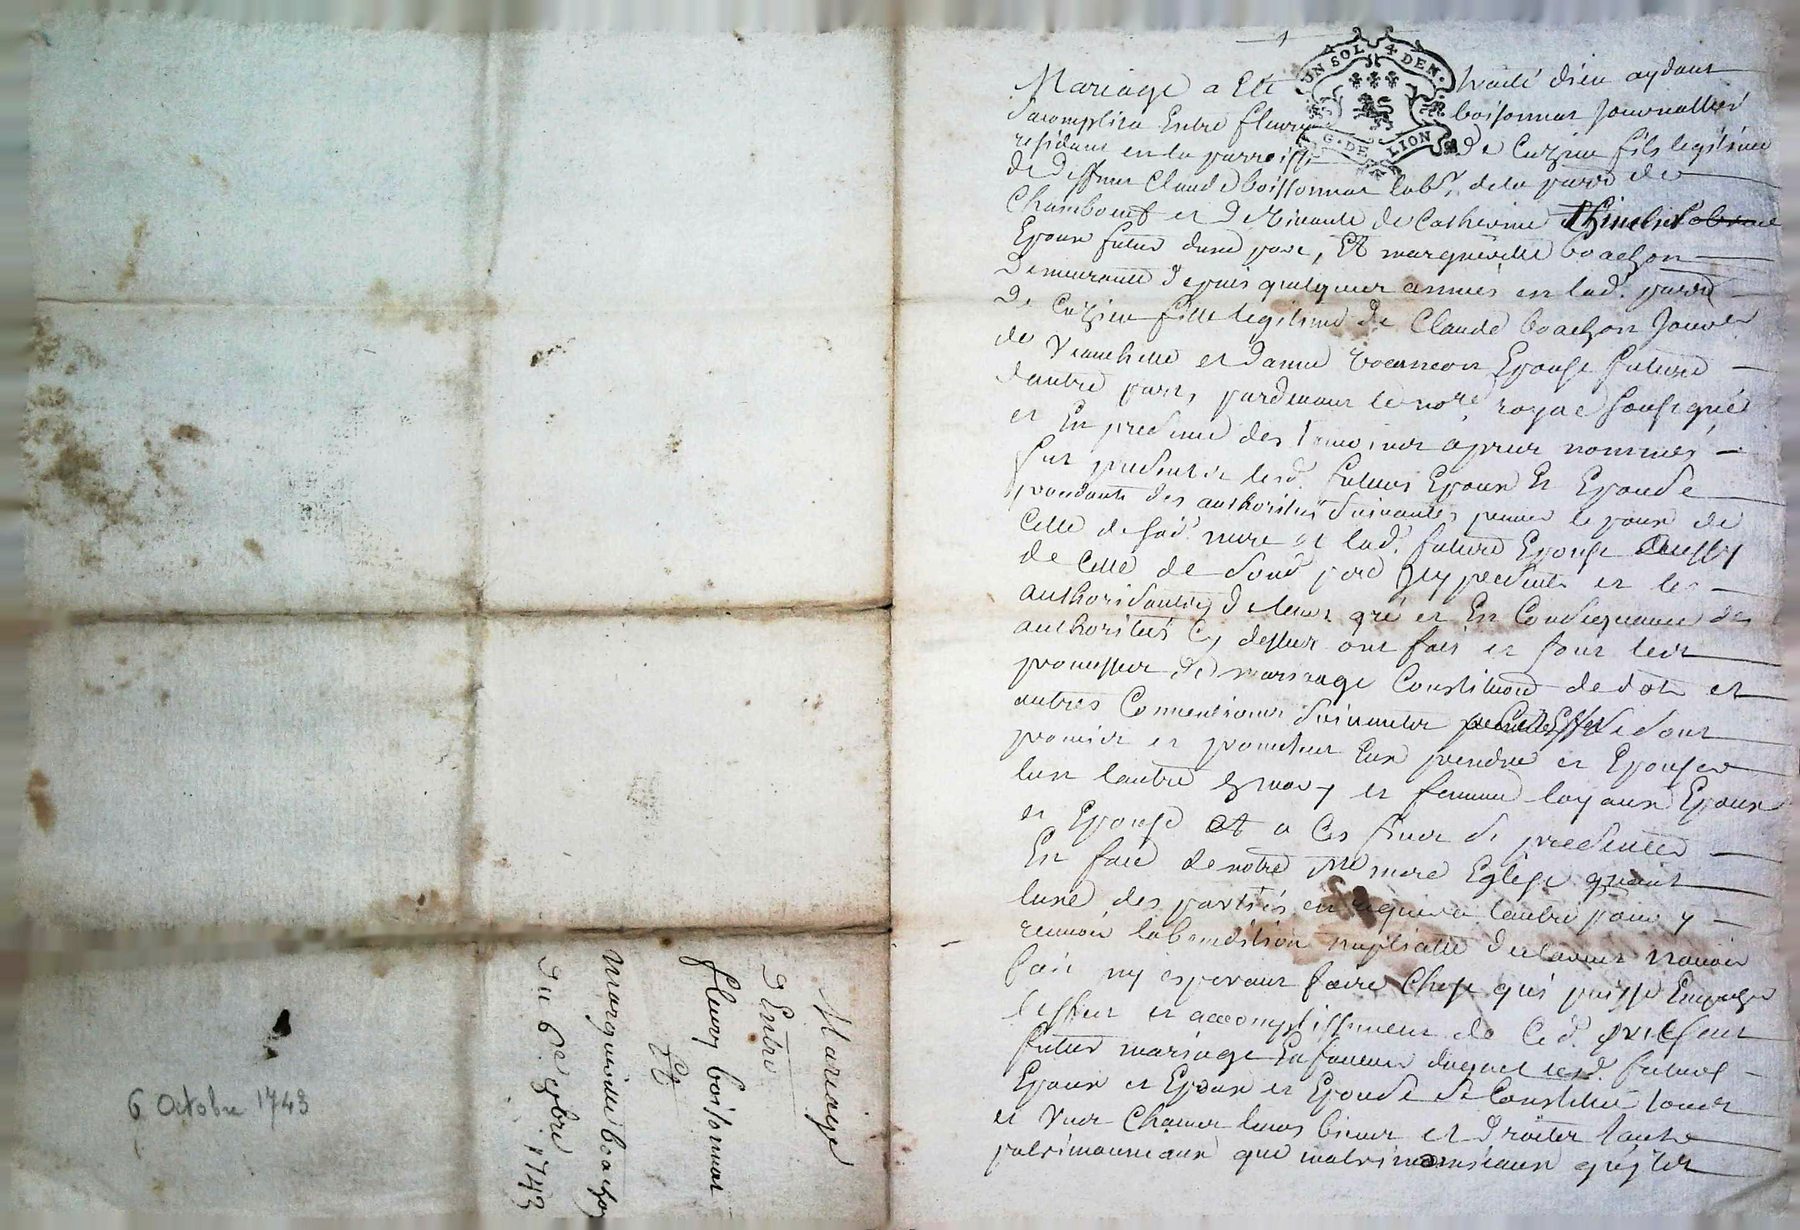 UN SOL 4 DEN.
G. DE LION
Mariage a Eté traité dieu aydant
sacomplira Entre fleury boissonnat Journallier
résidant en la parroisse de Cuzieu fils legitime
de deffunt Claude boissonnat lab.r de la parr de
Chamboeuf et de vivante de Catherine
Epoux futur dune part, Et margueritte boachon
Demeurante depuis quelques années en lad. parr
de Cuzieu fille legitime de Claude boachon Jour
de et danne Epouse future
dautre part, pardevant le no.re royal soussigné
et En presence des temoins apres nommés
sut presentés lesd. futurs Epoux Et Epouse
procedants des authorités suivantes scavoir le poux de
Celle de sad. mere et lad. future Epouse aussy
de Celle de sond. pere Icy presents et les
authorisants de leurs gré et En Consequance des
authorités Cy dessus ont fait et font leur
promesses de mariage Constitutions de dots et
autres Conventions suivantes se sont
promis et promettent Eux prendre et Epouser
lun lautre a mary et femme loyaux Epoux
et Epouse Et a Ces fins se presenter
En face de notre S.te mere Eglise quant
lune des partiés en requerra lautre pour y
recevoir la benediction nuptialle declarants navoir
fait ny esperant faire Chose qui puisse Empecher
leffect et accomplissement de Ced. present
futur mariage En faveur duquel lesd. futurs
Epoux et Epoux et Epouse se Constitué tous
et Uns Chacuns leurs biens et droits tants
patrimoniaux que matrimoniaux quels
Mariage
D'Entre
fleury boissonnat
Et
Margueritte boachon
Du 6e 8bre 1743
6 Octobre 1743